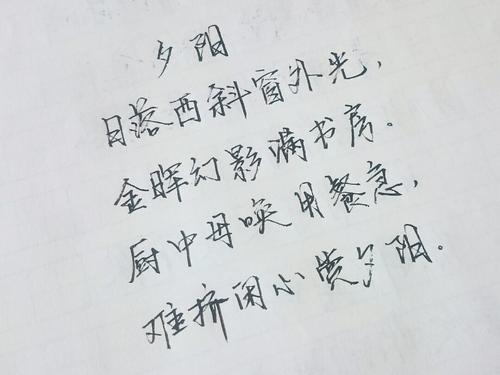 夕阳
日落西斜窗外光，
金晖幻影满书房。
厨中母唤用餐急，
难挤闲心赏夕阳。